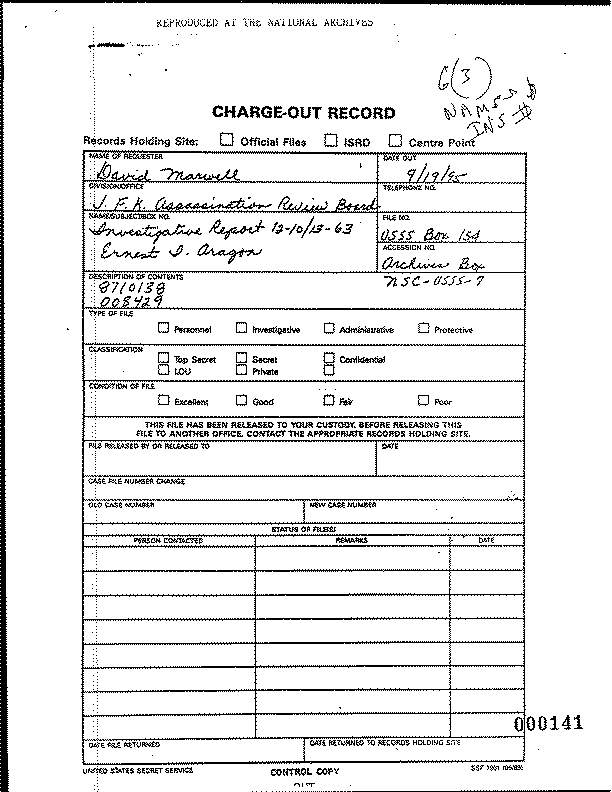 REPRODUCED AT THE NATIONAL ARCHIVES
6(3)
NAMES &
INS #
CHARGE-OUT RECORD
Records Holding Site: Official Files ISRD Centre Point
NAME OF REQUESTER
David Marwell
DATE OUT
9/19/95
DIVISION/OFFICE
J.F.K. Assassination Review Board
TELEPHONE NO.
NAME/SUBJECT/BOX NO.
Investigative Report 12-10/13-63
Ernest I. Aragon
FILE NO.
USSS Box 154
ACCESSION NO.
Archives Box
NSC-USSS-7
DESCRIPTION OF CONTENTS
8710138
008429
TYPE OF FILE
Personnel Investigative Administrative Protective
CLASSIFICATION
Top Secret Secret Confidential
LOU Private
CONDITION OF FILE
Excellent Good Fair Poor
THIS FILE HAS BEEN RELEASED TO YOUR CUSTODY. BEFORE RELEASING THIS
FILE TO ANOTHER OFFICE, CONTACT THE APPROPRIATE RECORDS HOLDING SITE.
FILE RELEASED BY OR RELEASED TO
DATE
CASE FILE NUMBER CHANGE
OLD CASE NUMBER
NEW CASE NUMBER
STATUS OF FILE(S)
PERSON CONTACTED REMARKS DATE
000141
DATE FILE RETURNED
DATE RETURNED TO RECORDS HOLDING SITE
UNITED STATES SECRET SERVICE
CONTROL COPY
OUT